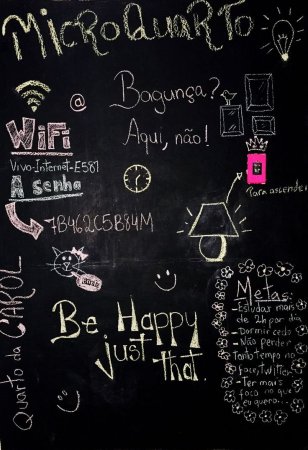 MICROQUARTO
@
Bagunça?
Aqui, não!
WiFi
Vivo-Internet-E581
A senha
7B462C5B84M
Para ascender
Quarto da CAROL
Be Happy
just
that.
Metas:
-Estudar mais
de 2h por dia
-Dormir cedo
-Não perder
tanto tempo no
face/twitter
-Ter mais
foco no que
eu quero...